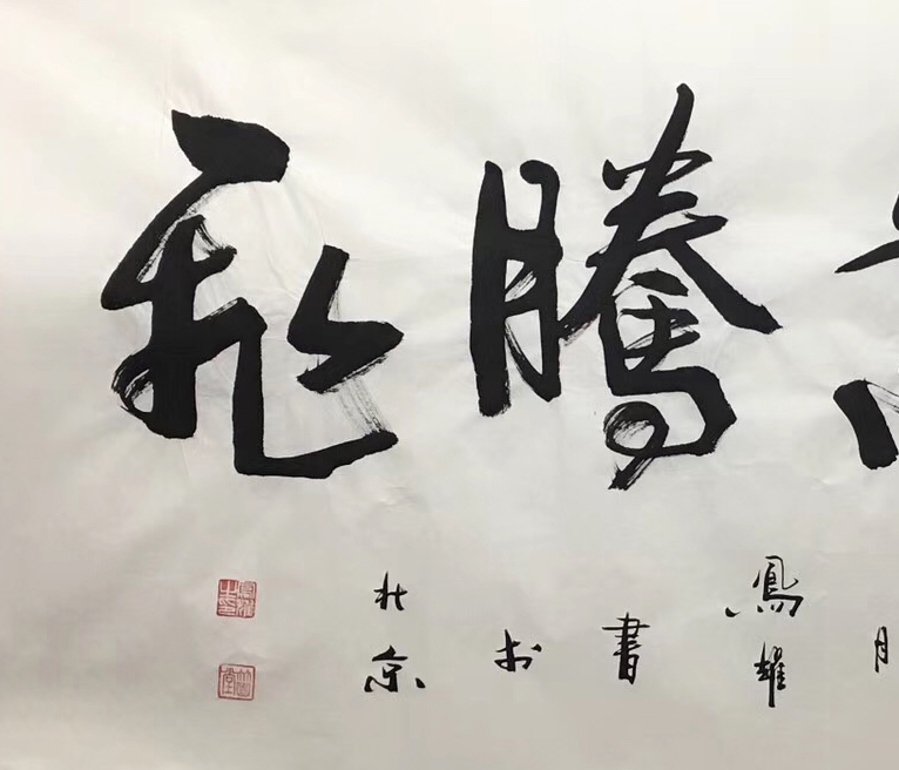 騰飛
月
鳳耀
書
於
北京